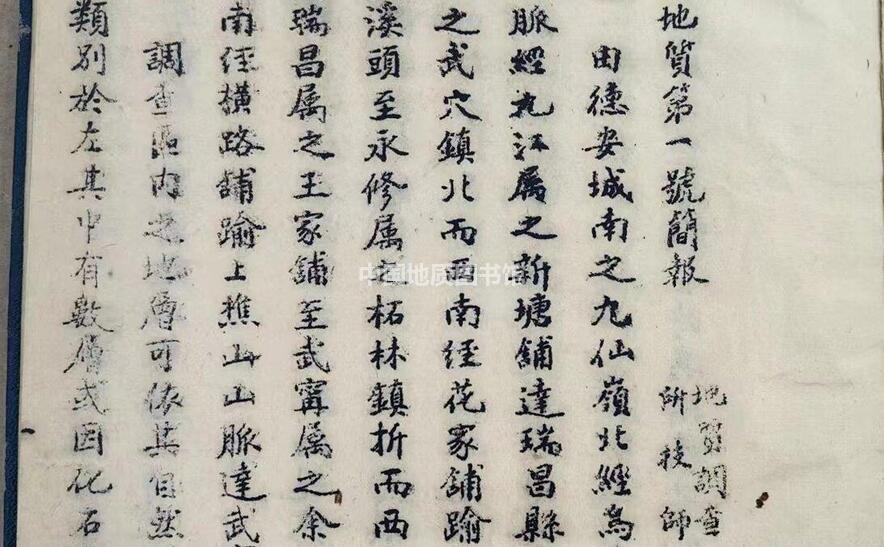 地質第一號簡報
地質調查
所技師
由德安城南之九仙嶺北經為
脈經九江属之新塘舖達瑞昌縣
之武穴鎮北而西南経花家舖踰
溪頭至永修属之柘林鎮折而西
瑞昌属之王家舖至武甯属之余
南径横路舖踰上樵山山脈達武
調查區内之地層可依其自然
類別於左其中有數層或因化石
中国地质图书馆